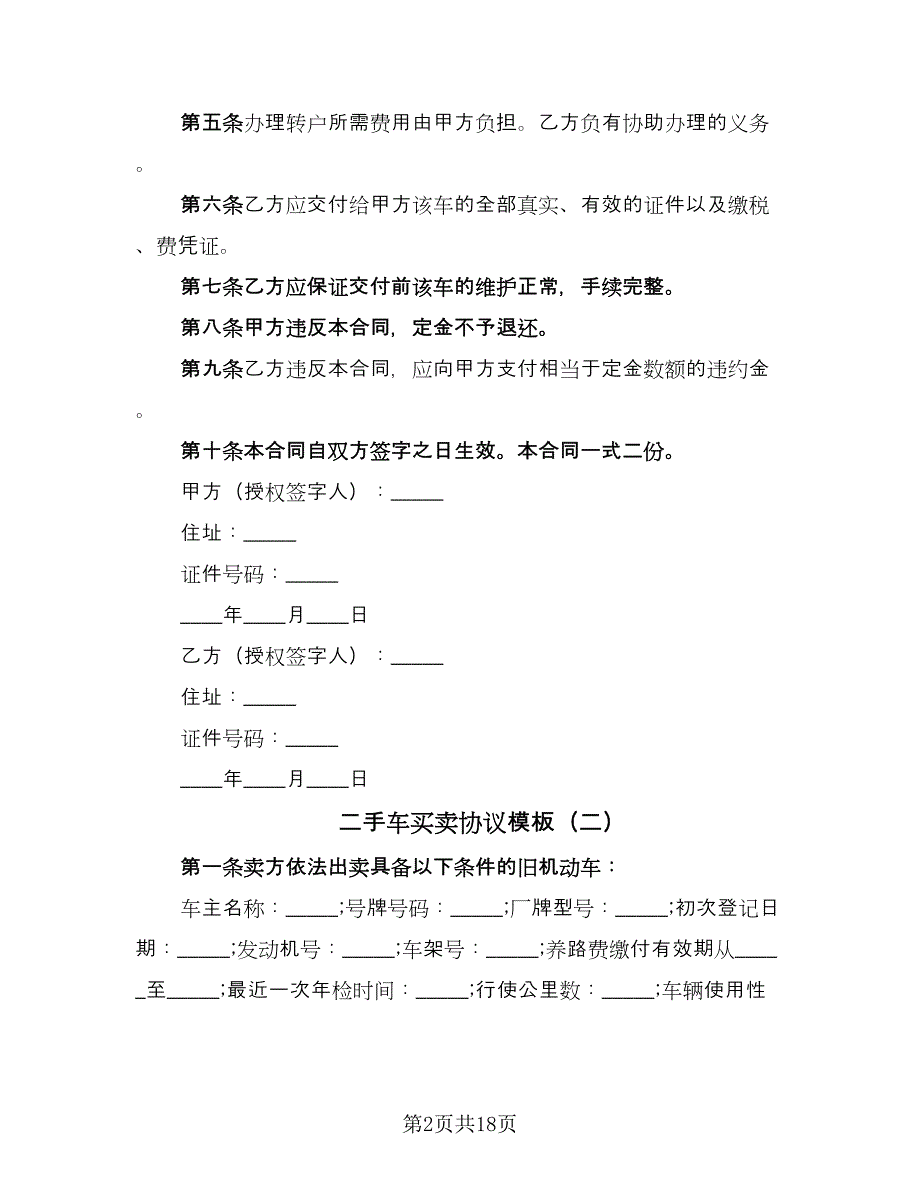 第五条办理转户所需费用由甲方负担。乙方负有协助办理的义务
。
第六条乙方应交付给甲方该车的全部真实、有效的证件以及缴税
、费凭证。
第七条乙方应保证交付前该车的维护正常，手续完整。
第八条甲方违反本合同，定金不予退还。
第九条乙方违反本合同，应向甲方支付相当于定金数额的违约金
。
第十条本合同自双方签字之日生效。本合同一式二份。
甲方（授权签字人）：_____
住址：_____
证件号码：_____
____年____月____日
乙方（授权签字人）：_____
住址：_____
证件号码：_____
____年____月____日
二手车买卖协议模板（二）
第一条卖方依法出卖具备以下条件的旧机动车：
车主名称：_____;号牌号码：_____;厂牌型号：_____;初次登记日
期：_____;发动机号：_____;车架号：_____;养路费缴付有效期从____
_至_____;最近一次年检时间：_____;行使公里数：_____;车辆使用性
第2页共18页